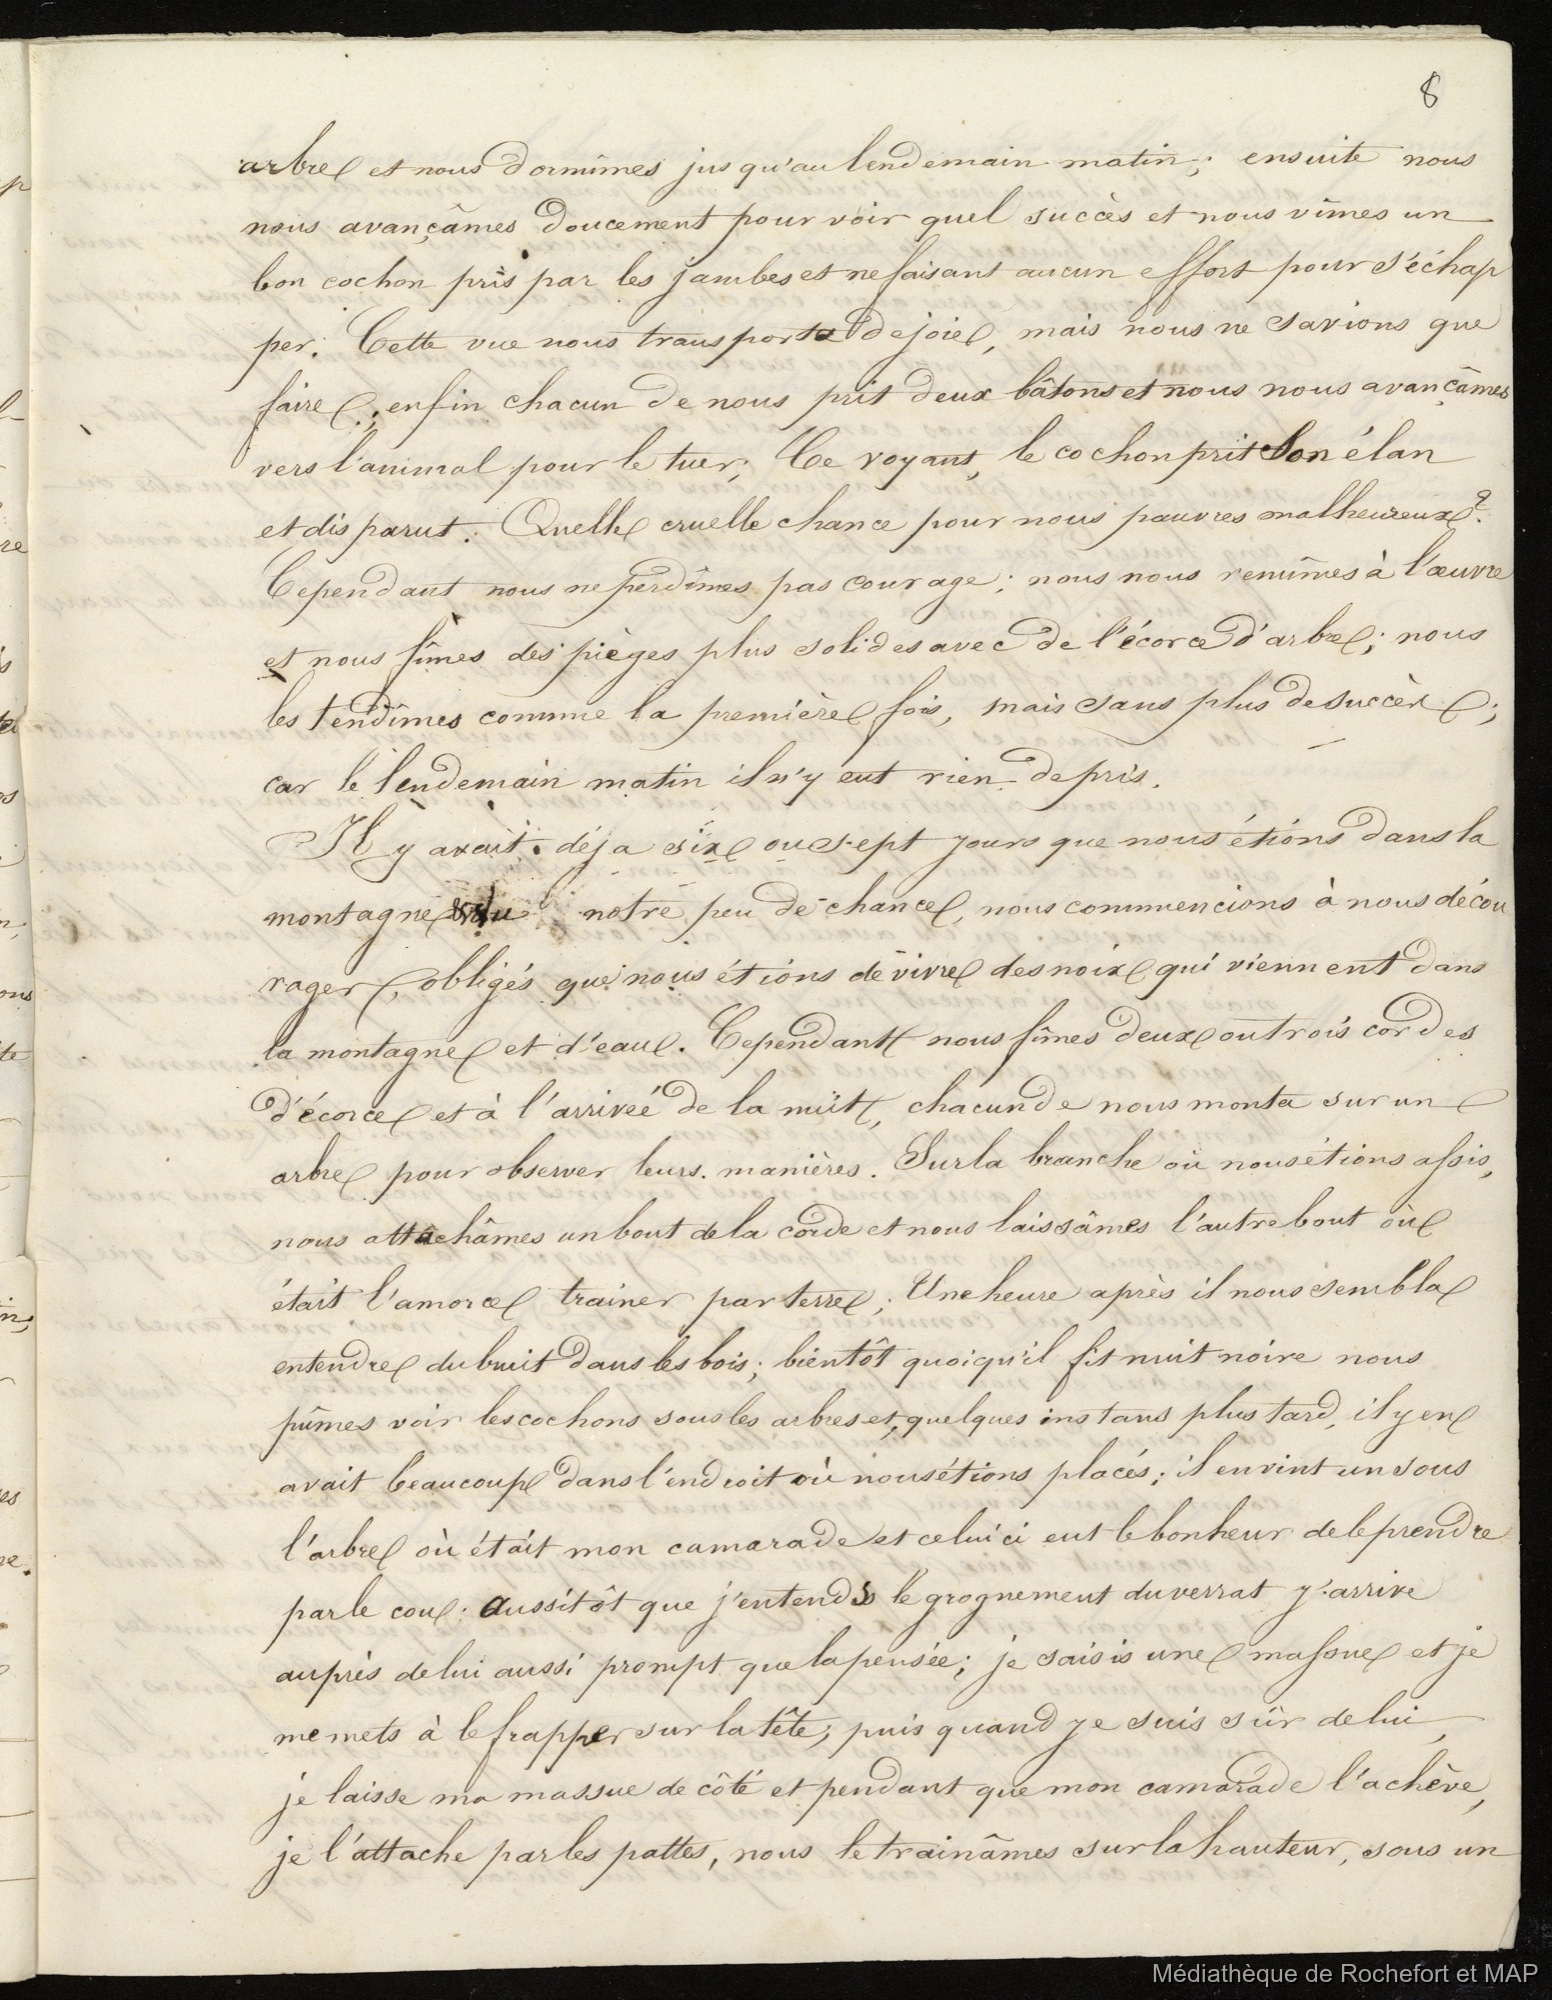 8
arbre et nous dormîmes jusqu'au lendemain matin; ensuite nous
nous avançâmes doucement pour voir quel succès et nous vîmes un
bon cochon pris par les jambes et ne faisant aucun effort pour s'échap
per. Cette vue nous transporta de joie, mais nous ne savions que
faire; enfin chacun de nous prit deux bâtons et nous nous avançâmes
vers l'animal pour le tuer; Ce voyant, le cochon prit son élan
et disparut. Quelle cruelle chance pour nous pauvres malheureux?
Cependant nous ne perdîmes pas courage; nous nous remîmes à l'œuvre
et nous fîmes des pièges plus solides avec de l'écorce d'arbre; nous
les tendîmes comme la première fois, mais sans plus de succès;
car le lendemain matin il n'y eut rien de pris.
Il y avait déja six ou sept jours que nous étions dans la
montagne vu notre peu de chance, nous commencions à nous décou
rager, obligés que nous étions de vivre des noix qui viennent dans
la montagne et d'eau. Cependant nous fîmes deux ou trois cordes
d'écorce et à l'arrivée de la nuit, chacun de nous monta sur un
arbre pour observer leurs manières. Sur la branche où nous étions assis,
nous attachâmes un bout de la corde et nous laissâmes l'autre bout où
était l'amorce trainer par terre; Une heure après il nous sembla
entendre du bruit dans les bois; bientôt quoiqu'il fit nuit noire nous
pûmes voir les cochons sous les arbres et, quelques instans plus tard, il y en
avait beaucoup dans l'endroit où nous étions placés; il en vint un sous
l'arbre où était mon camarade et celui ci eut le bonheur de le prendre
par le cou: aussitôt que j'entends le grognement du verrat j'arrive
auprès de lui aussi prompt que la pensée; je saisis une massue et je
me mets à le frapper sur la tête; puis quand je suis sûr de lui,
je laisse ma massue de côté et pendant que mon camarade l'achève,
je l'attache par les pattes, nous le trainâmes sur la hauteur, sous un
Médiathèque de Rochefort et MAP